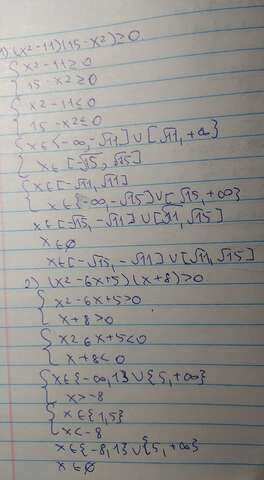 1) (x²-11)(15-x²)≥0.
{ x²-11≥0
{ 15-x²≥0
{ x²-11≤0
{ 15-x²≤0
{ x∈{-∞,-√11]∪[√11,+∞}
{ x∈[-√15,√15]
{ x∈[-√11,√11]
{ x∈{-∞,-√15]∪[√15,+∞}
x∈[-√15,-√11]∪[√11,√15]
x∈∅
x∈[-√15,-√11]∪[√11,√15]
2) (x²-6x+5)(x+8)>0
{ x²-6x+5>0
{ x+8>0
{ x²-6x+5<0
{ x+8<0
{ x∈{-∞,1}∪{5,+∞}
{ x>-8
{ x∈{1,5}
{ x<-8
x∈{-8,1}∪{5,+∞}
x∈∅